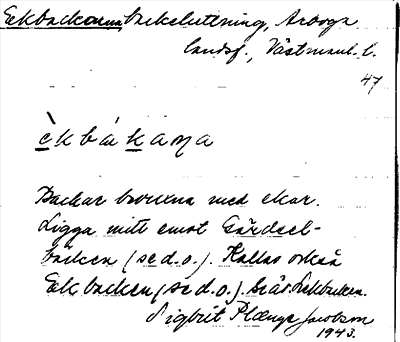 Ekbackarna, backsluttning, Arboga
landsf., Västmanl. l.
47
èkbákaṇa
Backar bevuxna med ekar.
Ligga mitt emot Gärdsel-
backen (se d. o.). Kallas också
Ekbacken (se d. o.).
Sigbrit Plænge Jacobson
1943.